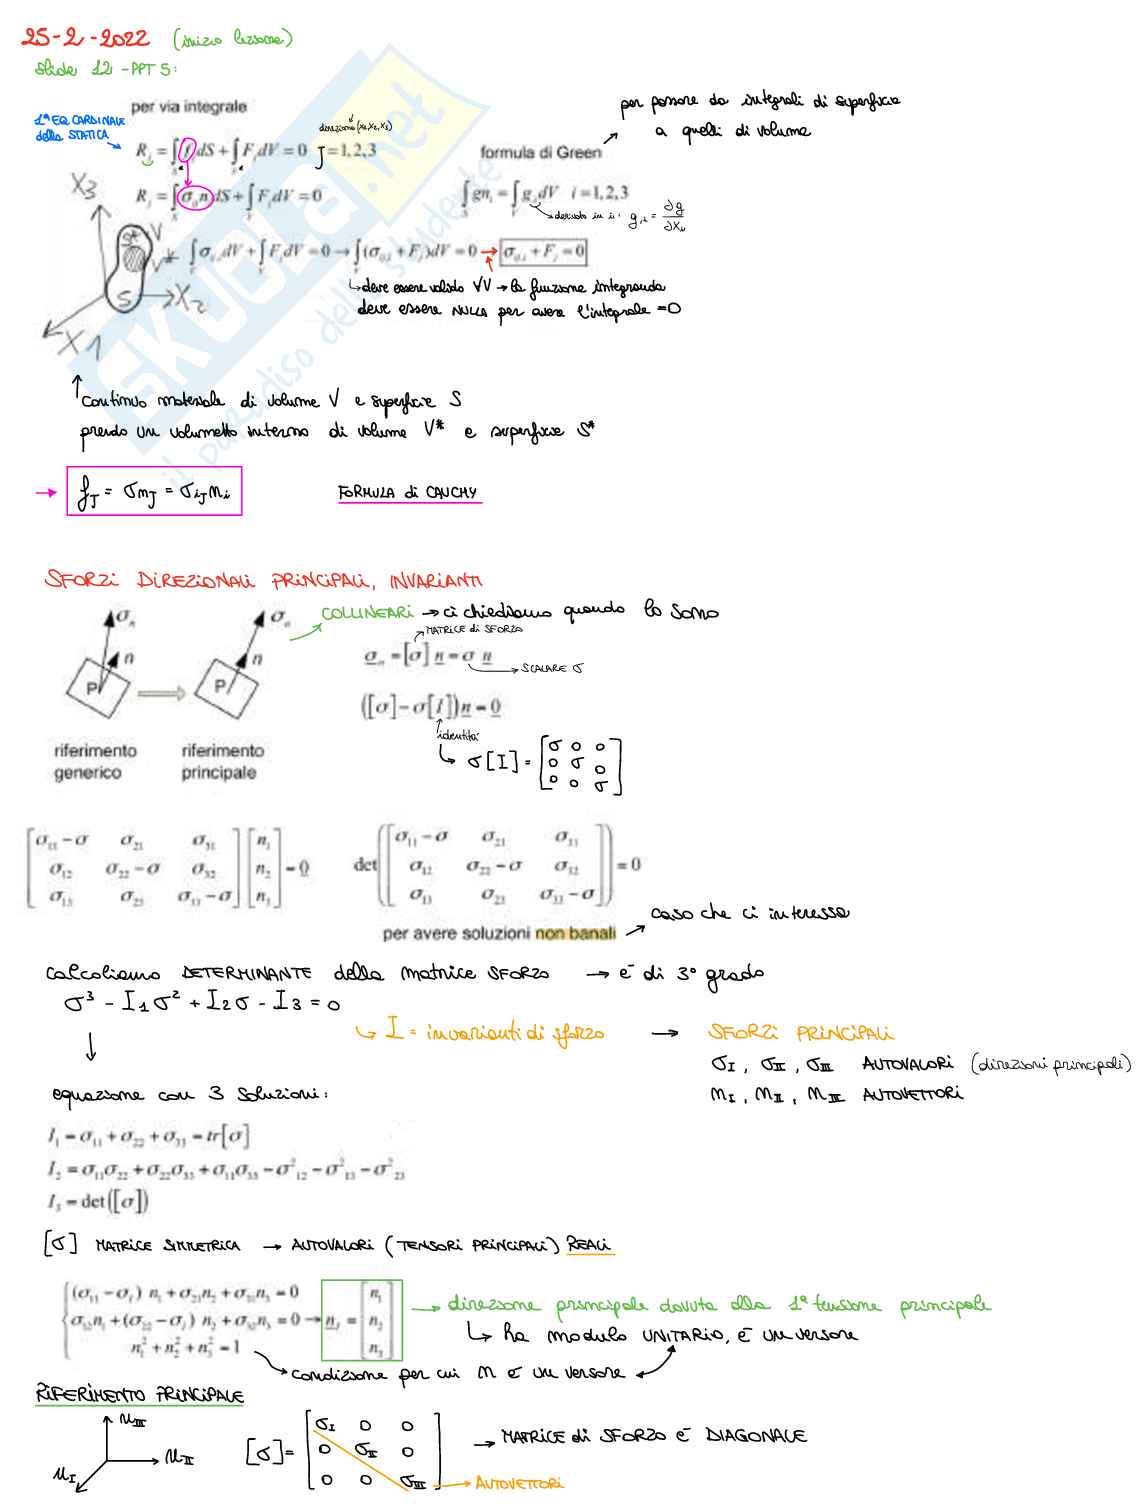 25-2-2022 (inizio lezione)
slide 12 - PPT 5:
per via integrale
1ª EQ CARDINALE della STATICA
direzione (x1, x2, x3)
R_j = ∫_S f_j dS + ∫_V F_j dV = 0 J = 1, 2, 3
R_j = ∫_S σ_ij n_i dS + ∫_V F_j dV = 0
∫_V σ_ij,i dV + ∫_V F_j dV = 0 → ∫_V (σ_ij,i + F_j) dV = 0 → σ_ij,i + F_j = 0
per passare da integrali di superficie
a quelli di volume
formula di Green
∫_S g n_i = ∫_V g_,i dV i = 1, 2, 3
derivata in i: g,i = ∂g/∂x_i
X3
S* V
V*
S X2
X1
deve essere valido ∀V → la funzione integranda
deve essere NULLA per avere l'integrale = 0
continuo materiale di volume V e superficie S
prendo un volumetto interno di volume V* e superficie S*
→ f_J = σ_nJ = σ_iJ n_i FORMULA di CAUCHY
SFORZI DIREZIONALI PRINCIPALI, INVARIANTI
σ_n n P
σ_n n P
riferimento generico
riferimento principale
COLLINEARI → ci chiediamo quando lo sono
MATRICE di SFORZO
σ_n = [σ] n = σ n
SCALARE σ
([σ] - σ[I]) n = 0
identità
σ[I] = [σ 0 0
0 σ 0
0 0 σ]
[σ11 - σ σ21 σ31
σ12 σ22 - σ σ32
σ13 σ23 σ33 - σ] [n1 n2 n3] = 0
det([σ11 - σ σ21 σ31
σ12 σ22 - σ σ32
σ13 σ23 σ33 - σ]) = 0
per avere soluzioni non banali
caso che ci interessa
calcoliamo DETERMINANTE della matrice SFORZO → è di 3° grado
σ³ - I1σ² + I2σ - I3 = 0
I = invarianti di sforzo → SFORZI PRINCIPALI
σI, σII, σIII AUTOVALORI (direzioni principali)
nI, nII, nIII AUTOVETTORI
equazione con 3 soluzioni:
I1 = σ11 + σ22 + σ33 = tr[σ]
I2 = σ11σ22 + σ22σ33 + σ11σ33 - σ²12 - σ²13 - σ²23
I3 = det([σ])
[σ] MATRICE SIMMETRICA → AUTOVALORI (TENSORI PRINCIPALI) REALI
(σ11 - σI) n1 + σ21n2 + σ31n3 = 0
σ12n1 + (σ22 - σI) n2 + σ32n3 = 0 → nI = [n1 n2 n3]
n1² + n2² + n3² = 1
→ direzione principale dovuta alla 1ª tensione principale
ha modulo UNITARIO, è un versore
condizione per cui n è un versore
RIFERIMENTO PRINCIPALE
nIII
nII
nI
[σ] = [σI 0 0
0 σII 0
0 0 σIII]
→ MATRICE di SFORZO è DIAGONALE
→ AUTOVETTORI
SKUOLA.net
il paradiso dello studente